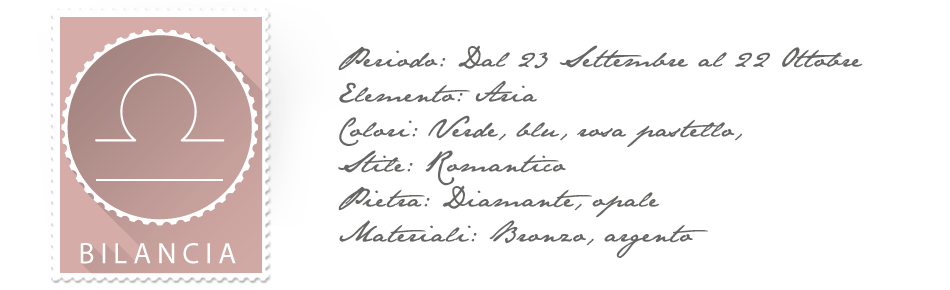 BILANCIA
Periodo: Dal 23 Settembre al 22 Ottobre
Elemento: Aria
Colori: Verde, blu, rosa pastello,
Stile: Romantico
Pietra: Diamante, opale
Materiali: Bronzo, argento